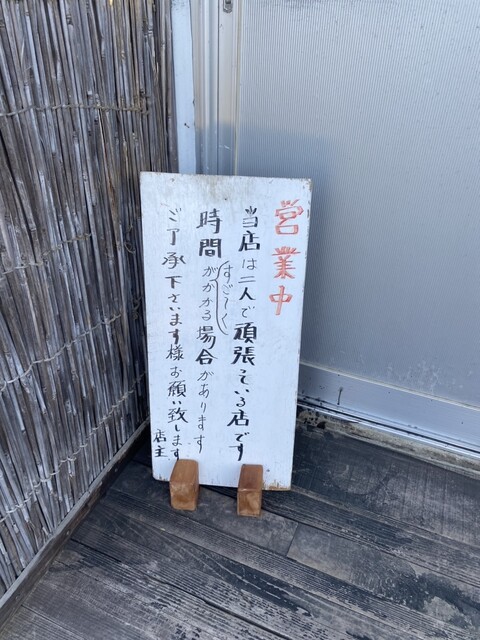 営業中
当店は二人で頑張ている店です
時間がかかる場合があります
すご〜く
ご了承下さいます様お願い致します
店主